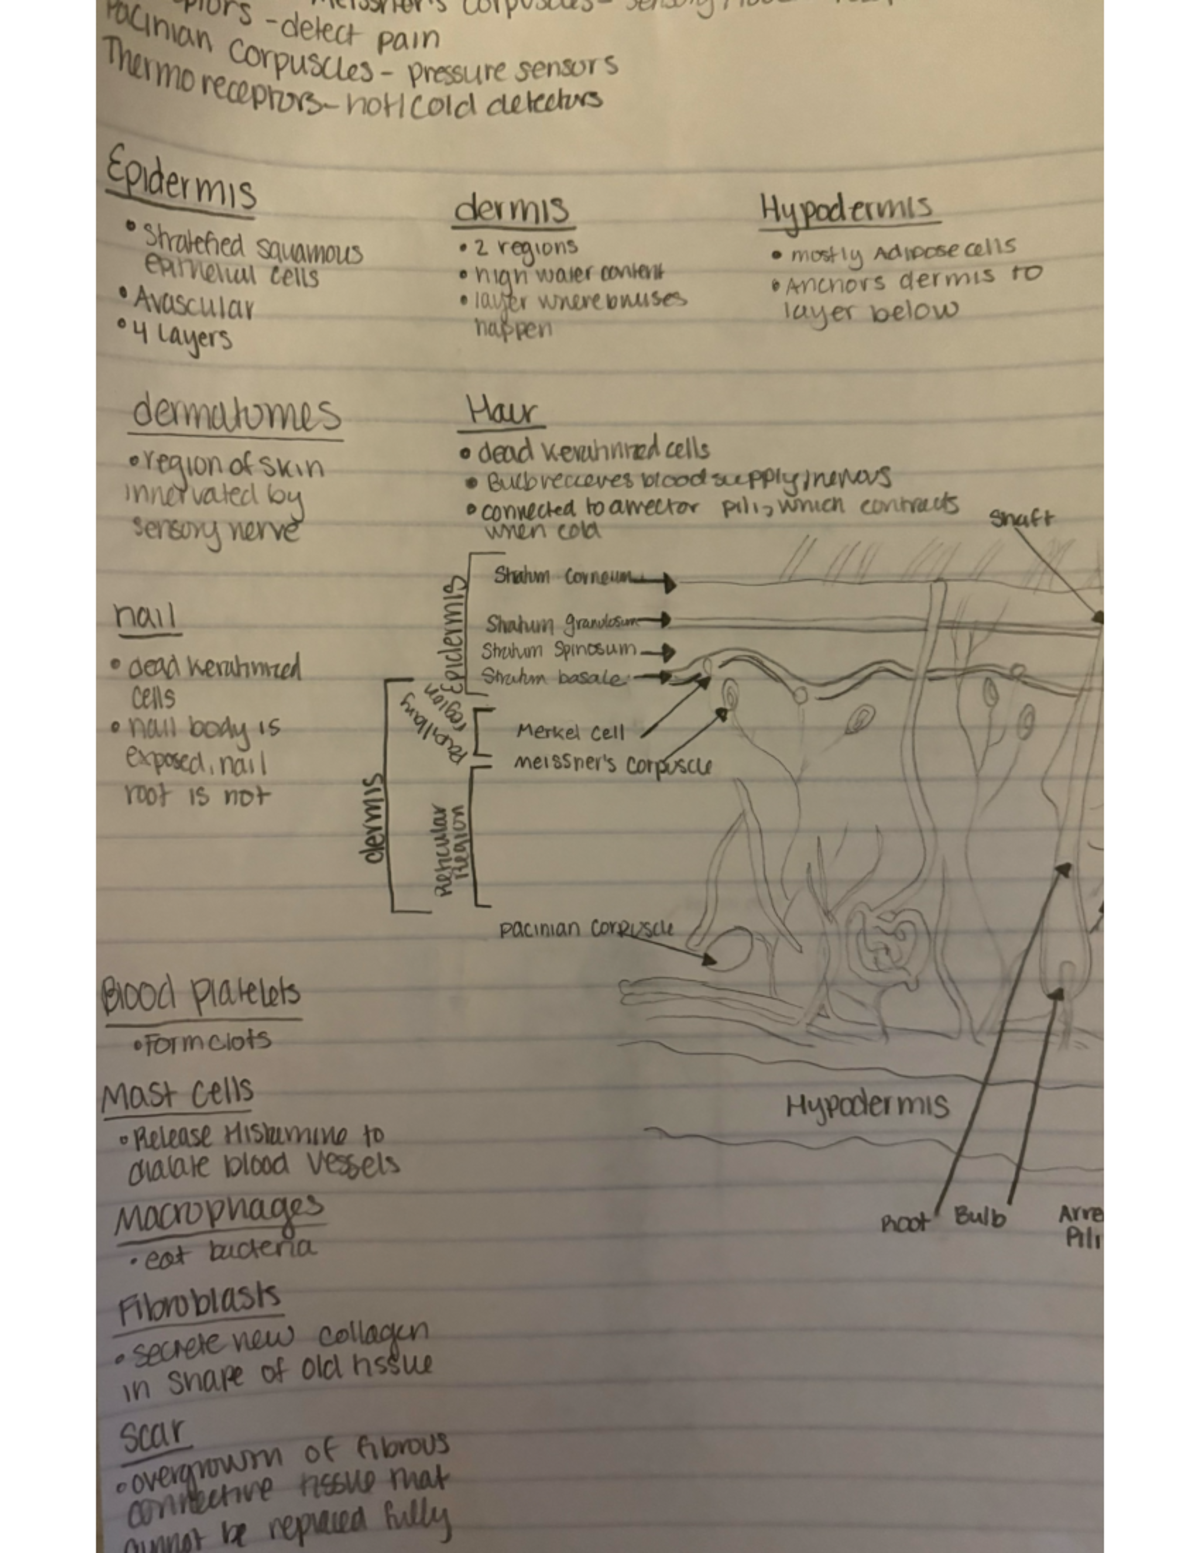 Meissner's Corpuscles- sensory
-detect pain
Pacinian Corpuscles- pressure sensors
Thermoreceptors- hot/cold detectors
Epidermis
• Stratefied squamous
epithelial cells
• Avascular
• 4 Layers
dermis
• 2 regions
• high water content
• layer where bruises
happen
Hypodermis
• mostly Adipose cells
• Anchors dermis to
layer below
dermatomes
• region of skin
innervated by
sensory nerve
Hair
• dead keratinized cells
• Bulb recieves blood supply/nervous
• connected to arrector pili, which contracts
when cold
Shaft
nail
• dead keratinized
cells
• nail body is
exposed, nail
root is not
Epidermis
Stratum corneum
Stratum granulosum
Stratum Spinosum
Stratum basale
dermis
Papillary
region
Merkel cell
Meissner's corpuscle
Reticular
Region
Pacinian Corpuscle
Blood platelets
• Form clots
Hypodermis
Mast cells
• Release Histamine to
dialate blood vessels
Macrophages
• eat bacteria
Root
Bulb
Arre
Pili
Fibroblasts
• secrete new collagen
in shape of old tissue
Scar
• overgrowth of fibrous
connective tissue that
cannot be replaced fully